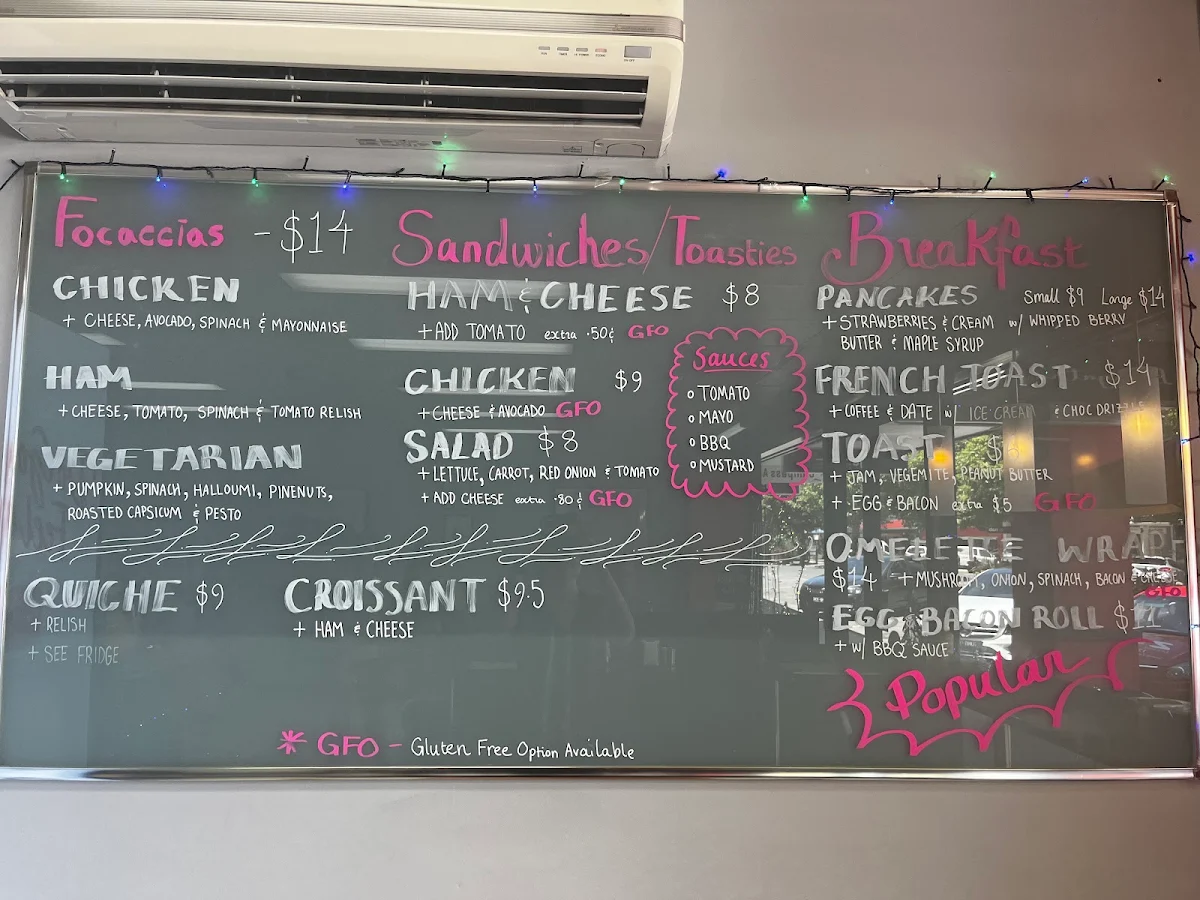 Focaccias - $14
CHICKEN
+ CHEESE, AVOCADO, SPINACH & MAYONNAISE
HAM
+ CHEESE, TOMATO, SPINACH & TOMATO RELISH
VEGETARIAN
+ PUMPKIN, SPINACH, HALLOUMI, PINENUTS,
ROASTED CAPSICUM & PESTO
Sandwiches/Toasties
HAM & CHEESE $8
+ ADD TOMATO extra .50¢ GFO
CHICKEN $9
+ CHEESE & AVOCADO GFO
SALAD $8
+ LETTUCE, CARROT, RED ONION & TOMATO
+ ADD CHEESE extra .80¢ GFO
Sauces
TOMATO
MAYO
BBQ
MUSTARD
Breakfast
PANCAKES Small $9 Large $14
+ STRAWBERRIES & CREAM w/ WHIPPED BERRY
BUTTER & MAPLE SYRUP
FRENCH TOAST $14
+ COFFEE & DATE w/ ICE CREAM & CHOC DRIZZLE
TOAST
+ JAM, VEGEMITE, PEANUT BUTTER
+ EGG & BACON extra $5 GFO
OMELETTE WRAP
$14 + MUSHROOM, ONION, SPINACH, BACON & CHEESE
GFO
EGG & BACON ROLL
+ w/ BBQ SAUCE
Popular
QUICHE $9
+ RELISH
+ SEE FRIDGE
CROISSANT $9.5
+ HAM & CHEESE
* GFO - Gluten Free Option Available